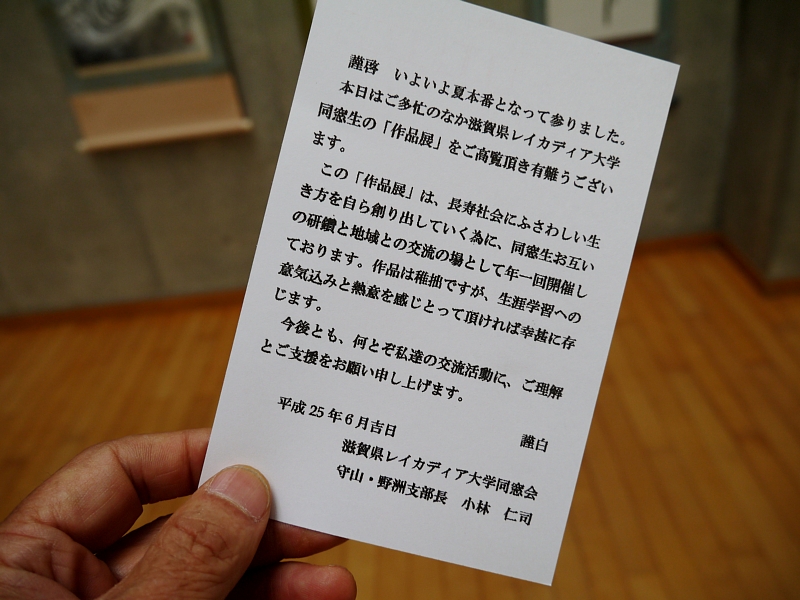 謹啓　いよいよ夏本番となって参りました。
本日はご多忙のなか滋賀県レイカディア大学
同窓生の「作品展」をご高覧頂き有難うござい
ます。
この「作品展」は、長寿社会にふさわしい生
き方を自ら創り出していく為に、同窓生お互い
の研鑽と地域との交流の場として年一回開催し
ております。作品は稚拙ですが、生涯学習への
意気込みと熱意を感じとって頂ければ幸甚に存
じます。
今後とも、何とぞ私達の交流活動に、ご理解
とご支援をお願い申し上げます。
謹白
平成25年6月吉日
滋賀県レイカディア大学同窓会
守山・野洲支部長　小林　仁司